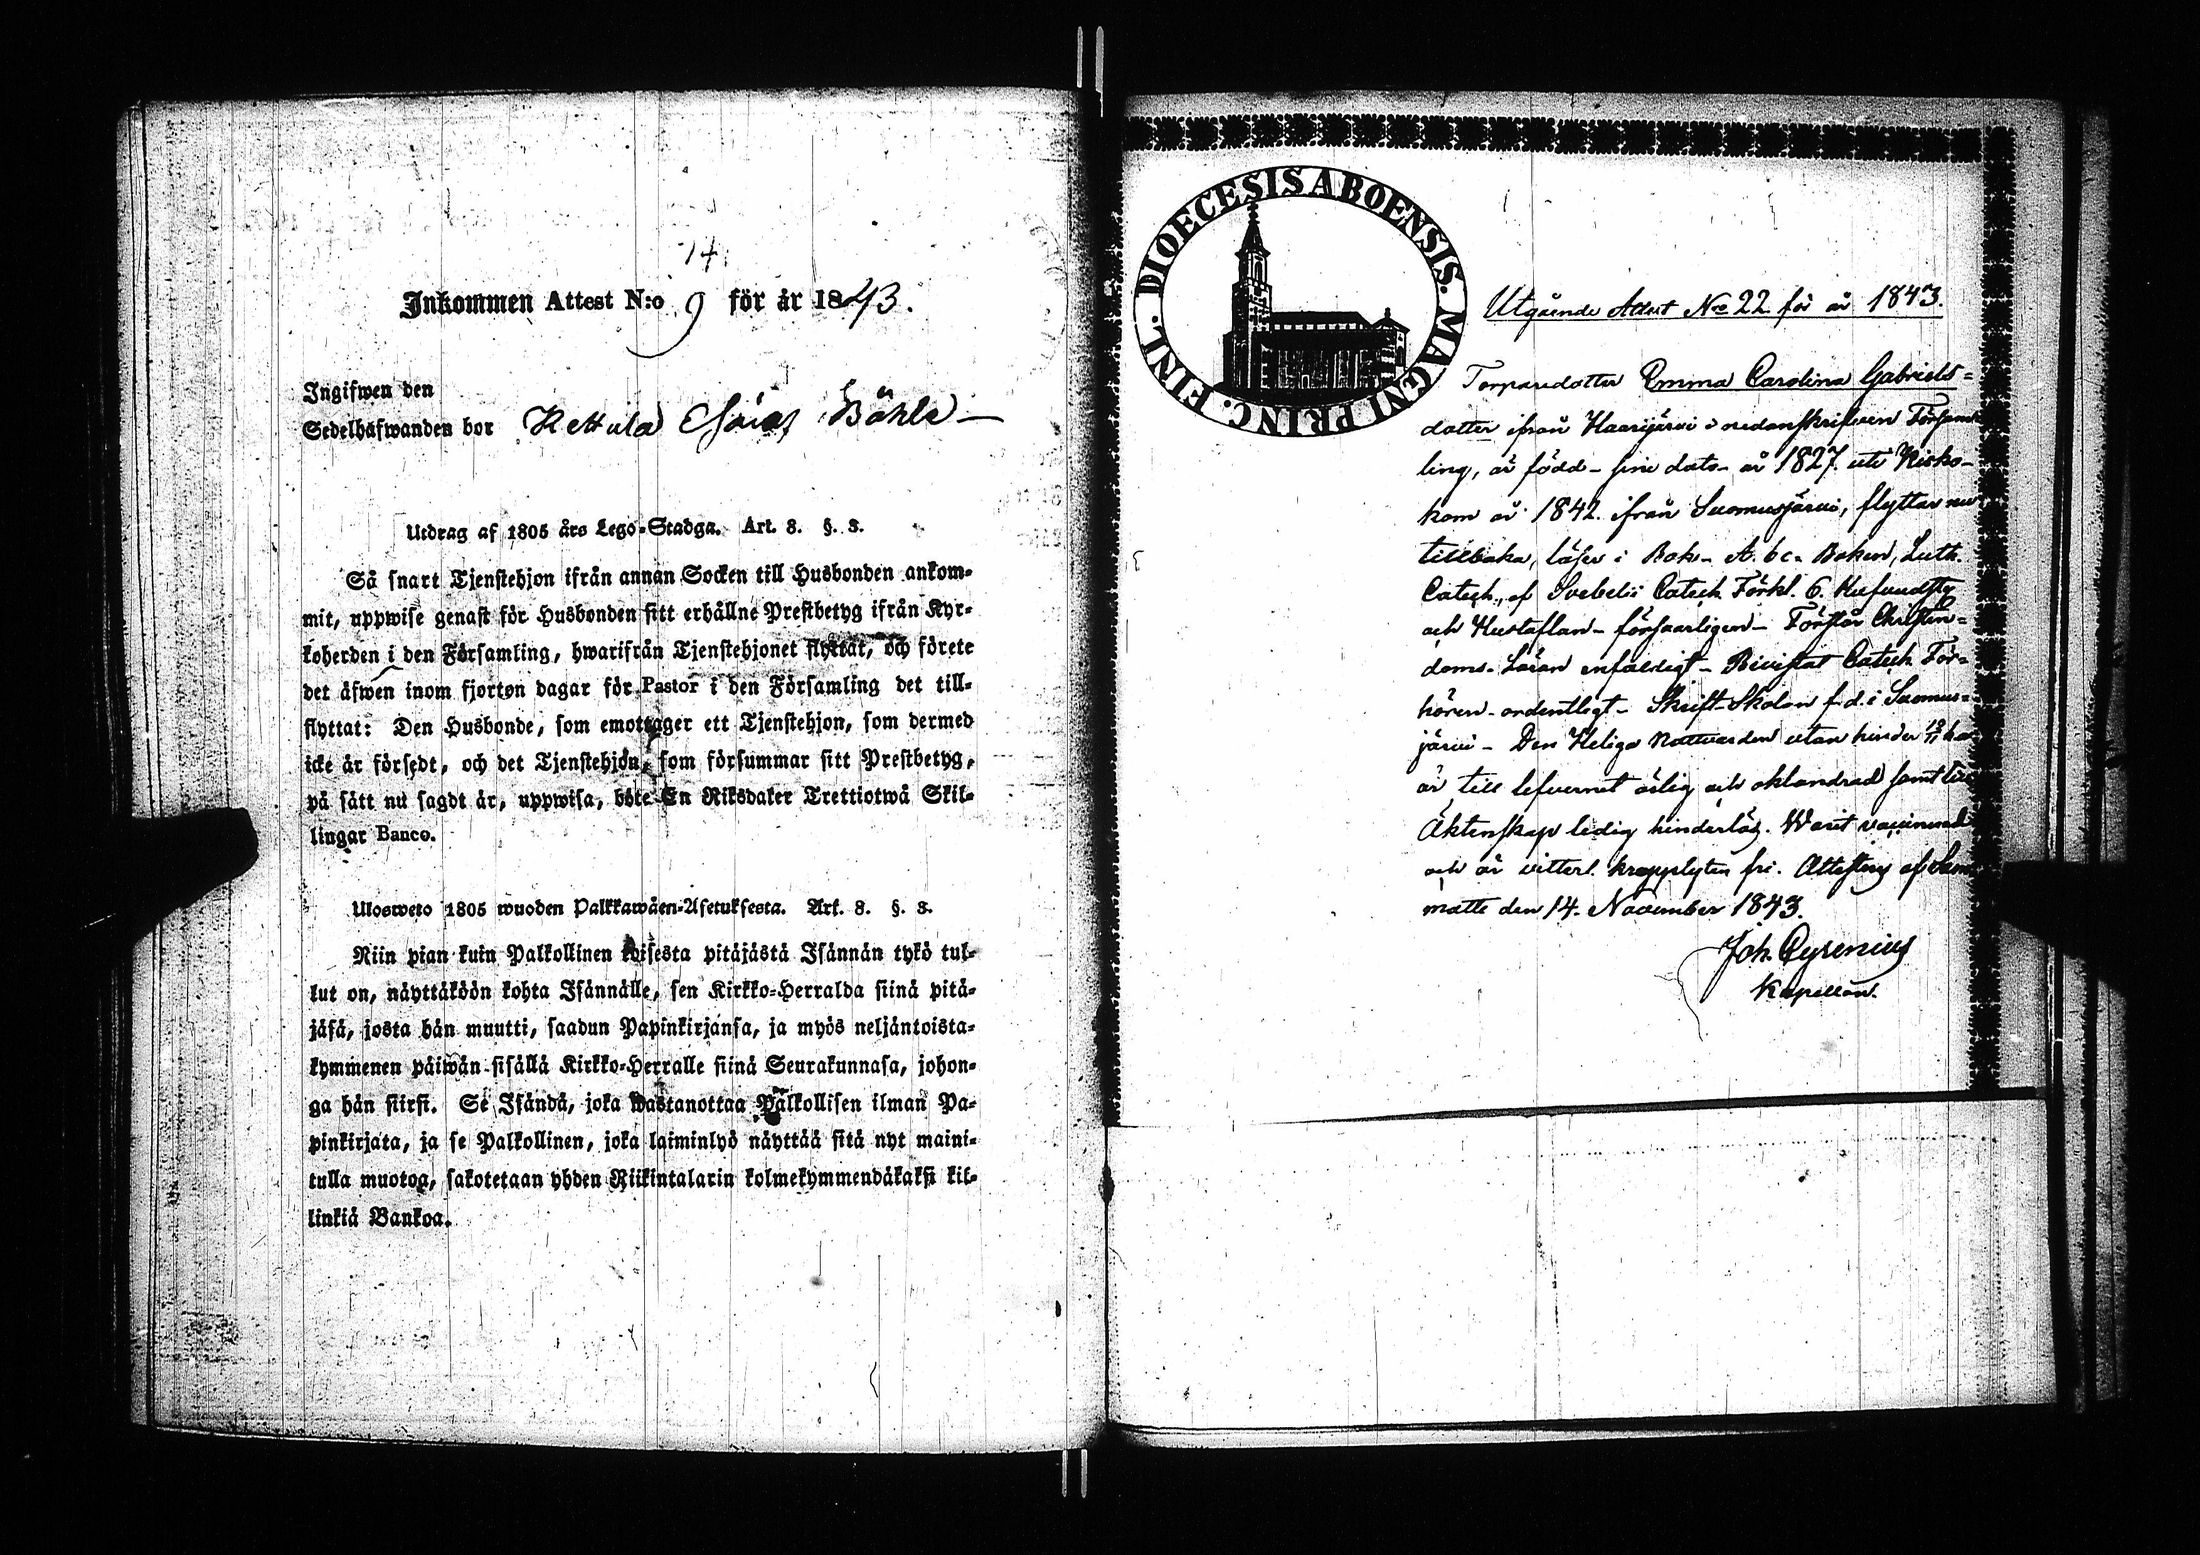 14.
Inkommen Attest N:o 9 för år 1843.
Ingifwen den
Sedelhafwanden bor Kettula Böhle
Utdrag af 1805 års Lego-Stadga. Art. 8. §. 3.
Så snart Tjenstehjon ifrån annan Socken till Husbonden ankom-
mit, uppwise genast för Husbonden sitt erhållne Prestbetyg ifrån Kyr-
koherden i den Församling, hwarifrån Tjenstehjonet flyttat, och förete
det äfwen inom fjorton dagar för Pastor i den Församling det till-
flyttat: Den Husbonde, som emottager ett Tjenstehjon, som dermed
icke är försedt, och det Tjenstehjon, som försummar sitt Prestbetyg,
på sätt nu sagdt är, uppwisa, böte En Riksdaler Trettiotwå Skil-
lingar Banco.
Ulosweto 1805 wuoden Palkkawäen-Asetuksesta. Art. 8. §. 3.
Niin pian kuin Palkollinen toisesta pitäjästä Isännän tykö tul-
lut on, näyttäköön kohta Isännälle, sen Kirkko-Herralda siinä pitä-
jäsä, josta hän muutti, saadun Papinkirjansa, ja myös neljäntoista-
kymmenen päiwän sisällä Kirkko-Herralle siinä Seurakunnasa, johon-
ga hän siirsi. Se Isändä, joka wastanottaa Palkollisen ilman Pa-
pinkirjata, ja se Palkollinen, joka laiminlyö näyttää sitä nyt maini-
tulla muotoa, sakotetaan yhden Riikintalarin kolmekymmendäkaksi kil-
linkiä Bankoa.
DIOECESIS ABOENSIS. MAGNI PRINC. FINL.
Utgående Attest Nro 22 för år 1843.
Torparedotter Emma Carolina Gabriels-
dotter ifrån Haarijärvi i nedanskrifven Försam
ling, är född - sine dato - år 1827. uti Kisko -
kom år 1842. ifrån Suomusjärvi, flyttar nu
tillbaka, läser i Bok - A. b c - Boken, Luth.
Catech., af Svebelii Catech. Förkl. 6. Hufvudsty
och Hustaflan - försvarligen - Förstår Christen-
doms-Läran enfaldigt - Bivistat Catech. För-
hören - ordentligt - Skrift-Skolan f. d. i Suomus-
järvi - Den Heliga Nattvarden utan hinder
är till lefvernet ärlig och oklandrad samt till
Äktenskap ledig hinderlös. Warit vaccinerad
och är vitterl. kroppslyten fri. Attesteras af Sam
matte den 14. November 1843.
Joh. Cyrenius
Kapellan.